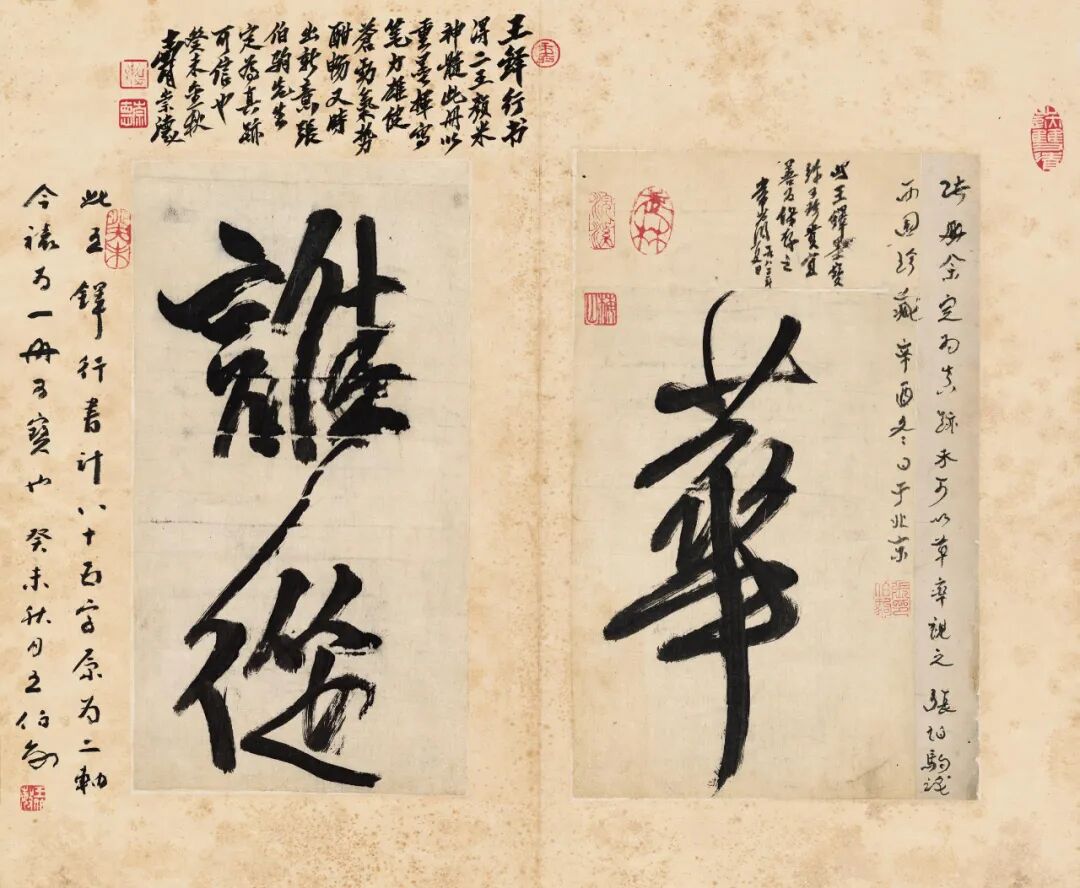 此册余定为真跡未可以草率視之 張伯駒識
珍藏 辛酉冬日于北京
此王鐸墨寳
珍貴宜
善为保存之
華
王鐸行书
得二王顏米
神髓此册以
重墨揮寫
笔力雄健
蒼勁氣勢
酣暢又時
出新意張
伯駒先生
定為真跡
可信也
癸未金秋
崇德
誰從
此王鐸行書計八十五字原为二軸
今裱为一册可寳也 癸未秋月王伯敏